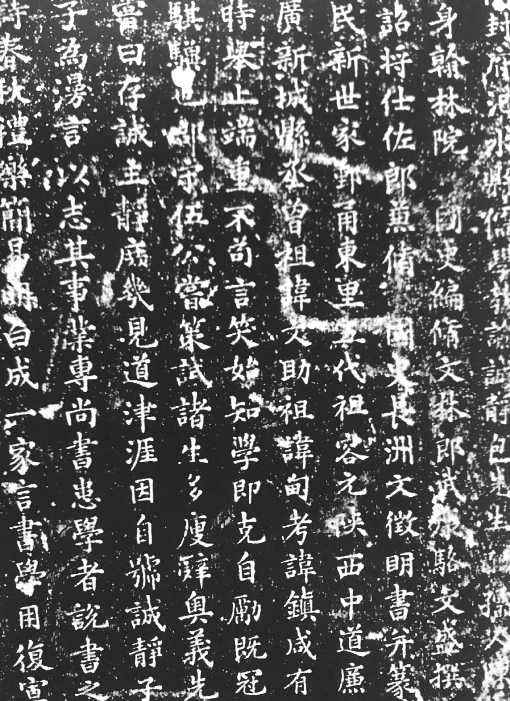 封府氾水縣儒學教諭誠靜包先生
身翰林院國史編脩文林郎武駱文盛撰
詔将仕佐郎蒹脩國史長洲文徵明書并篆
民新世家鄞甬東里五代祖容元陝西中道廉
廣新城縣丞曽祖諱文助祖諱甸考諱鎮咸有
時舉止端重不苟言笑始知學即克自勵既冠
騏驥也郡守伍公嘗策試諸生多廋辭奥義先
嘗曰存誠主靜庶㡬見道津涯因自號誠靜子
子為漫言以志其事業專尚書患學者說書之
詩春秋禮樂簡易明白成一家言書學用復寅